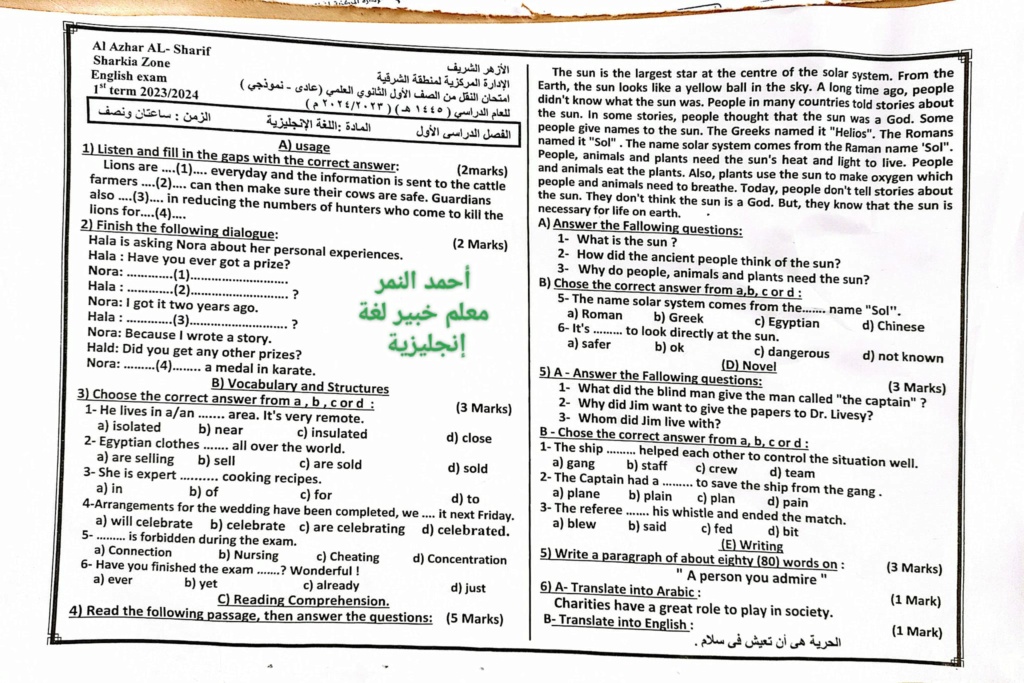 Al Azhar AL- Sharif
Sharkia Zone
English exam
1st term 2023/2024
الأزهر الشريف
الإدارة المركزية لمنطقة الشرقية
امتحان النقل من الصف الأول الثانوي العلمي (عادى - نموذجي )
للعام الدراسي ( ١٤٤٥ هـ) ( ٢٠٢٤/٢٠٢٣ م )
الفصل الدراسى الأول
المادة :اللغة الإنجليزية
الزمن : ساعتان ونصف
A) usage
1) Listen and fill in the gaps with the correct answer: (2marks)
Lions are ....(1).... everyday and the information is sent to the cattle
farmers ....(2).... can then make sure their cows are safe. Guardians
also ....(3).... in reducing the numbers of hunters who come to kill the
lions for....(4)....
2) Finish the following dialogue: (2 Marks)
Hala is asking Nora about her personal experiences.
Hala : Have you ever got a prize?
Nora: ............(1)...............
Hala : ............(2)............... ?
Nora: I got it two years ago.
Hala : ............(3)............... ?
Nora: Because I wrote a story.
Hald: Did you get any other prizes?
Nora: .........(4)........ a medal in karate.
أحمد النمر
معلم خبير لغة
إنجليزية
B) Vocabulary and Structures
3) Choose the correct answer from a , b , c or d : (3 Marks)
1- He lives in a/an ....... area. It's very remote.
a) isolated b) near c) insulated d) close
2- Egyptian clothes ....... all over the world.
a) are selling b) sell c) are sold d) sold
3- She is expert .......... cooking recipes.
a) in b) of c) for d) to
4-Arrangements for the wedding have been completed, we .... it next Friday.
a) will celebrate b) celebrate c) are celebrating d) celebrated.
5- ......... is forbidden during the exam.
a) Connection b) Nursing c) Cheating d) Concentration
6- Have you finished the exam .......? Wonderful !
a) ever b) yet c) already d) just
C) Reading Comprehension.
4) Read the following passage, then answer the questions: (5 Marks)
The sun is the largest star at the centre of the solar system. From the
Earth, the sun looks like a yellow ball in the sky. A long time ago, people
didn't know what the sun was. People in many countries told stories about
the sun. In some stories, people thought that the sun was a God. Some
people give names to the sun. The Greeks named it "Helios". The Romans
named it "Sol" . The name solar system comes from the Raman name 'Sol".
People, animals and plants need the sun's heat and light to live. People
and animals eat the plants. Also, plants use the sun to make oxygen which
people and animals need to breathe. Today, people don't tell stories about
the sun. They don't think the sun is a God. But, they know that the sun is
necessary for life on earth.
A) Answer the Fallowing questions:
1- What is the sun ?
2- How did the ancient people think of the sun?
3- Why do people, animals and plants need the sun?
B) Chose the correct answer from a,b, c or d :
5- The name solar system comes from the....... name "Sol".
a) Roman b) Greek c) Egyptian d) Chinese
6- It's ......... to look directly at the sun.
a) safer b) ok c) dangerous d) not known
(D) Novel
5) A - Answer the Fallowing questions: (3 Marks)
1- What did the blind man give the man called "the captain" ?
2- Why did Jim want to give the papers to Dr. Livesy?
3- Whom did Jim live with?
B - Chose the correct answer from a, b, c or d :
1- The ship ......... helped each other to control the situation well.
a) gang b) staff c) crew d) team
2- The Captain had a ......... to save the ship from the gang .
a) plane b) plain c) plan d) pain
3- The referee ....... his whistle and ended the match.
a) blew b) said c) fed d) bit
(E) Writing
5) Write a paragraph of about eighty (80) words on : (3 Marks)
" A person you admire "
6) A- Translate into Arabic : (1 Mark)
Charities have a great role to play in society.
B- Translate into English : (1 Mark)
الحرية هى أن تعيش فى سلام .